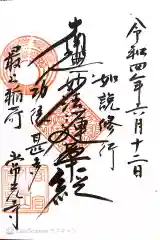 令和四年六月十二日
如説修行
南無妙法蓮華経
功徳甚多
最上稲荷